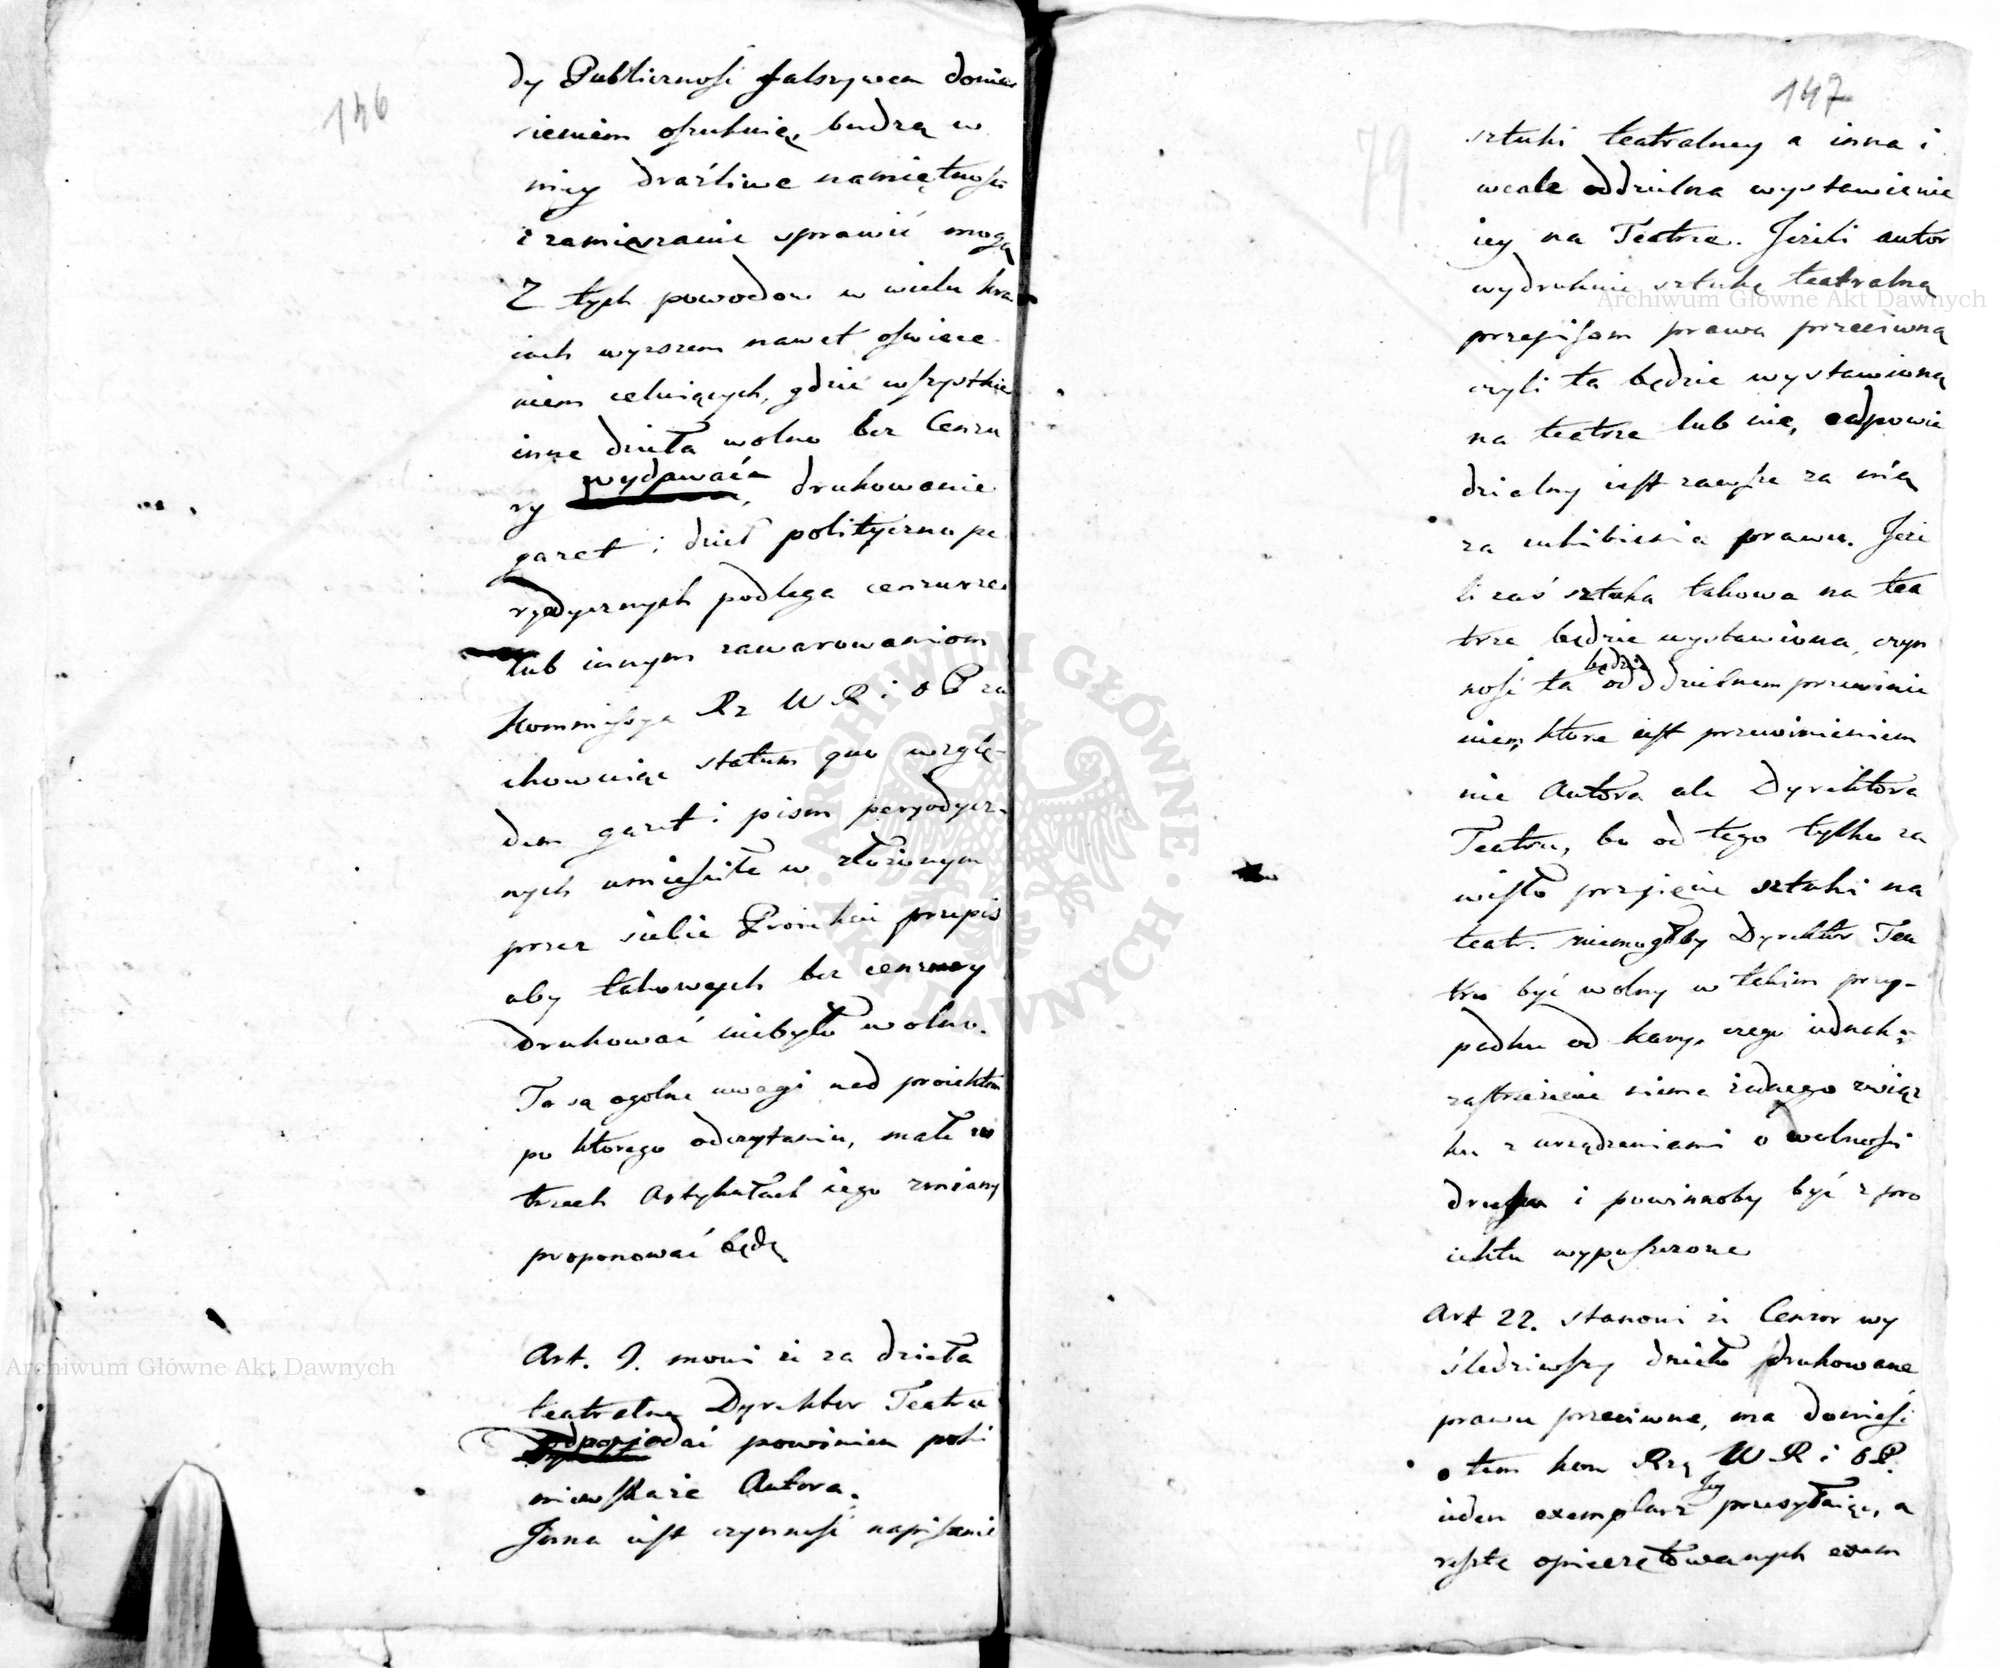 146
dy Publicznosć fałszywem donie
sieniem oszukuią, budzą w
niey drażliwe namiętnosci
i zamięszanie sprawić mogą
Z tych powodow w wielu kra
iach wyzszem nawet oswiece
niem celuiących, gdzie wszystkie
inne dzieła wolno bez Cenzu
ry wydawać, drukowanie
gazet i dzieł polityczno pe
ryodycznych podlega cenzurze
lub innym zawarowaniom
Kommissya Rz W R i O P za
chowuiąc statum quo wzglę-
dem gazet i pism peryodycz-
nych umieściła w złożonym
przez siebie Proiekcie przepis
aby takowych bez cenzury
drukować niebyło wolno.
To są ogolne uwagi nad proiektem
po ktorego odczytaniu, małe w
trzech Artykułach iego zmiany
proponować będę
Art. 9. mowi że za dzieła
teatralne Dyrektor Teatru
odpowiadać powinien poki
niewskaże Autora.
Inna iest czynność napisanie
147
79
sztuki teatralney a inna i
wcale oddzielna wystawienie
iey na Teatrze. Jeżeli autor
wydrukuie sztukę teatralną
przepisom prawa przeciwną
czyli ta będzie wystawioną
na teatrze lub nie, odpowie
dzialny iest zawsze za nią
za uchibienia prawu. Jeże
li zaś sztuka takowa na tea
trze będzie wystawiona, czyn
ność ta będzie oddzielnem przewinie
niem, ktore iest przewinieniem
nie Autora ale Dyrektora
Teatru, bo od tego tylko za
wisło przyięcie sztuki na
teatr. niemogłby Dyrektor Tea
tru być wolny w takim przy-
padku od kary, czego iednak
zastrzeżenie niema żadnego związ
ku z urządzeniami o wolnosci
druku i powinnoby być z pro
iektu wypuszczone
Art 22. stanowi że Cenzor wy
śledziwszy dzieło drukowane
prawu przeciwne, ma donieść
o tem kom Rzą W R i O P.
ieden exemplarz Jey przesyłaiąc, a
resztę opieczętowanych exem
Archiwum Główne Akt Dawnych
Archiwum Główne Akt Dawnych
ARCHIWUM GŁÓWNE AKT DAWNYCH